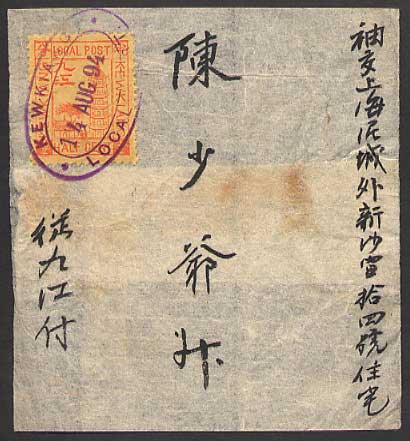 袖交上海泥城外新沙當拾四號住宅
陳少爺升
從九江付
LOCAL POST
HALF CENT
KEWKIANG
14 AUG 94
LOCAL